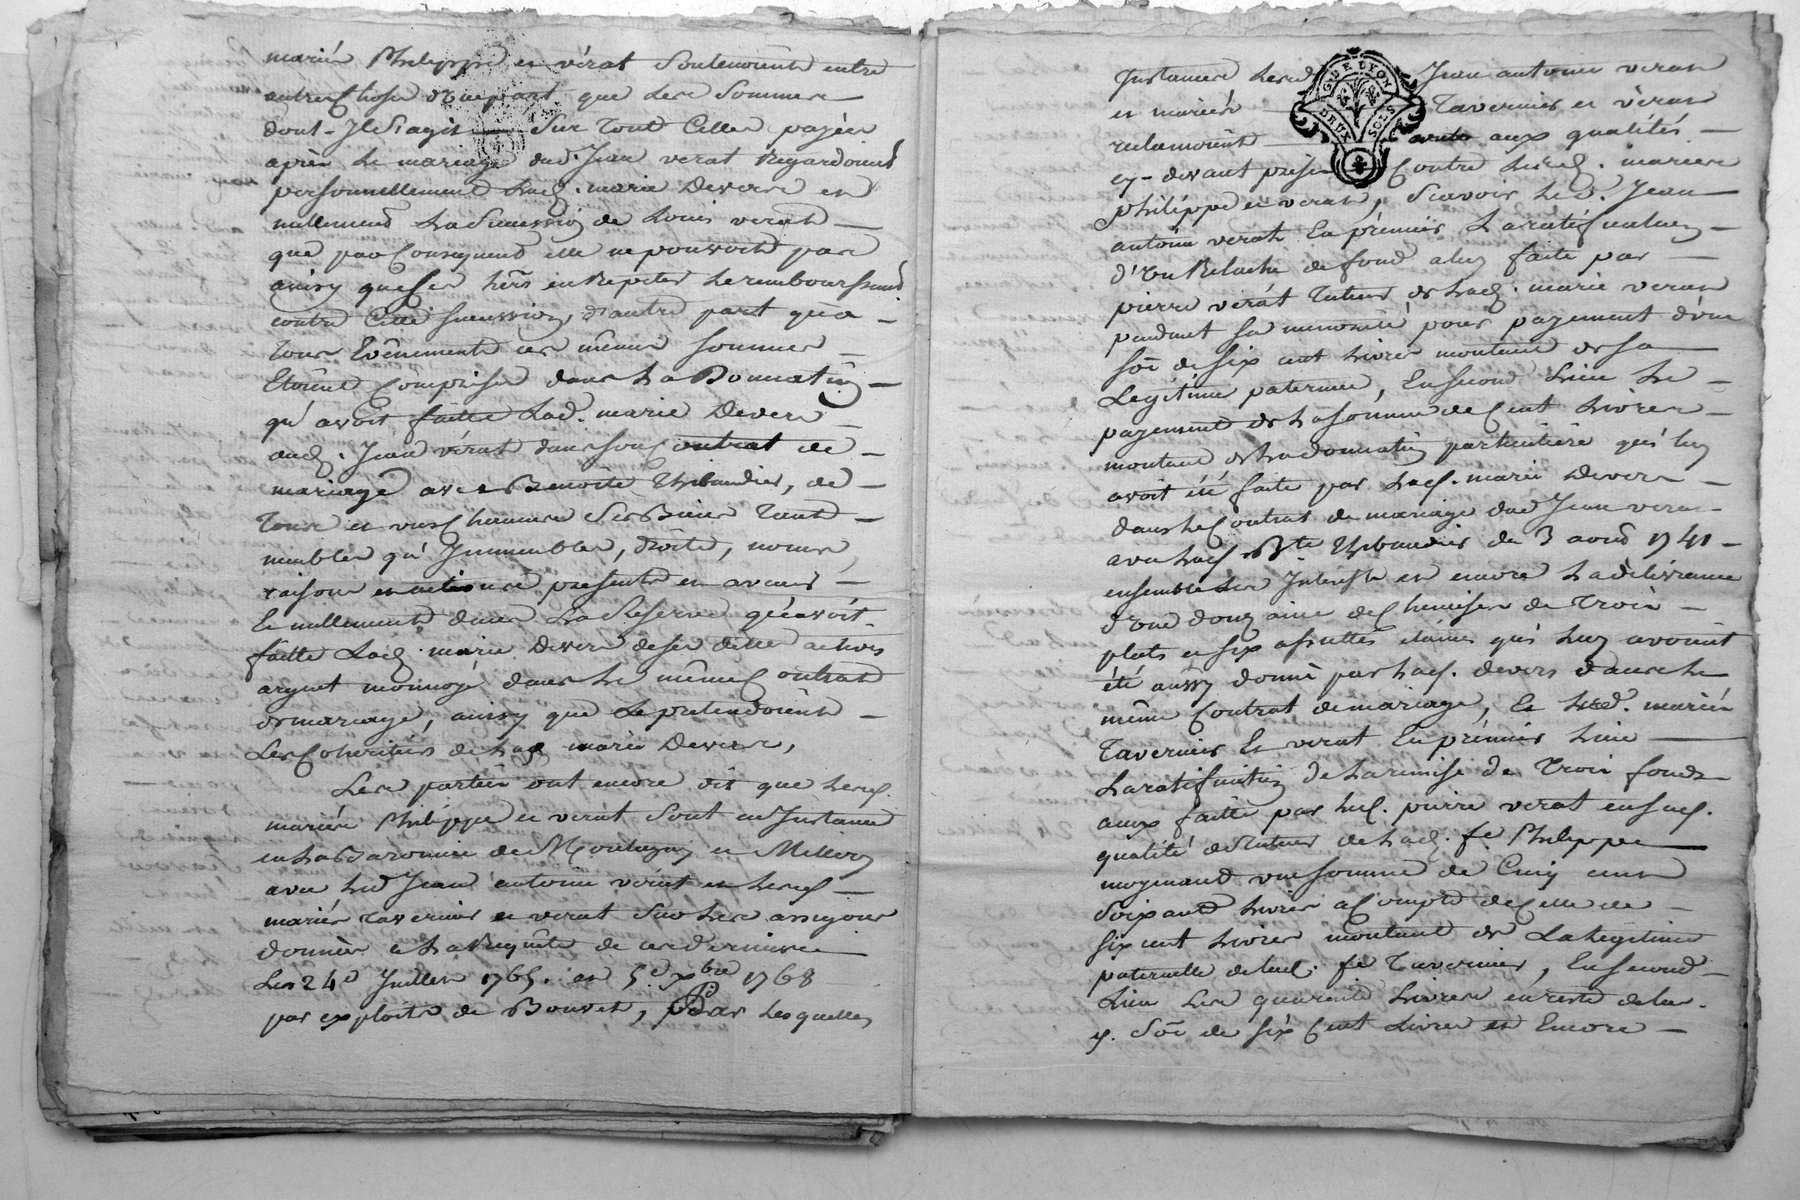 mariés Philippe et vérat Soutenoient entre
autres Choses d'une part que Les Sommes
dont Il S'agit Sur Tout Celles payées
après Le mariage dud. Jean verat Regardoient
personnellement Lad. marie Devers et
nullement La Succession de Louis verat
que par Consequent elle ne pouvoit pas
ainsy que Ses hers en Repeter Le remboursement
contre Cette Succession, d'autre part qu'a
Tous Evênements ces mêmes Sommes
Etoient Comprises dans La Donnation
qu'avoit faitte Lad. marie Devers
aud. Jean vérat dans Son Contrat de
mariage avec Benoite Thibaudier, de
Tous et uns Chacuns Ses Biens Tant
meubles qu'Immeubles, droits, noms,
raisons et actions présents et avenir
Et nullement dans La Réserve qu'avoit
faitte Lad. marie Devers de Ses dettes actives
argent monnoyé dans Le même Contrat
de mariage, ainsy que Le pretendoient
Les Coheritiers de Lad. marie Devers,
Les parties ont encore dit que Lesd.
mariés Philippe et verat Sont en Instance
en La Baronnie de Montagny et Millery
avec Led. Jean antoine verat et Lesd.
mariés Tavernier et verat Sur Les assignons
données a La Requête de ces derniers
Les 24e Juillet 1765. et 5e xbre 1768
par exploits de Bouvet, Par Lesquelles
Instances Lesd. Jean antoine verat
et mariés Tavernier et vérat
reclamoient aux qualités
cy-devant Contre Lesd. mariés
philippe et verat, Scavoir Led. Jean
antoine verat En prémier La ratification
d'un Relache de fond a luy faite par
pierre verat Tuteur de Lad. marie verat
pendant Sa minorité pour payement d'une
Sōe de Six cent Livres montant de Sa
Légitime paternelle, En Second Lieu Le
payement de La Somme de Cent Livres
montant de La donnation particulière qui luy
avoit été faite par Lad. marie Devers
dans Le Contrat de mariage dud. Jean verat
avec Lad. Bte Thibaudier du 3 aoud 1741
ensemble Les Interests et encore La délivrance
d'une douzaine de Chemises de Trois
plats et Six assiettes étaims qui Luy avoient
été aussy donné par Lad. devers dans Le
même Contrat de mariage, Et Lesd. mariés
Tavernier Et verat En prémier Lieu
La ratification de La remise de Trois fonds
aux faitte par Led. pierre verat en Sad.
qualité de Tuteur de Lad. fe Philippe
moyenant une Somme de Cinq cent
Soixante Livres a Compte de Celle de
Six cent Livres montant de La Legitime
paternelle de lad. fe Tavernier, En Second
Lieu Les quarante Livres en reste de la
d. Sōe de Six Cent Livres et Encore
G. DE LYON
DEUX SOLS